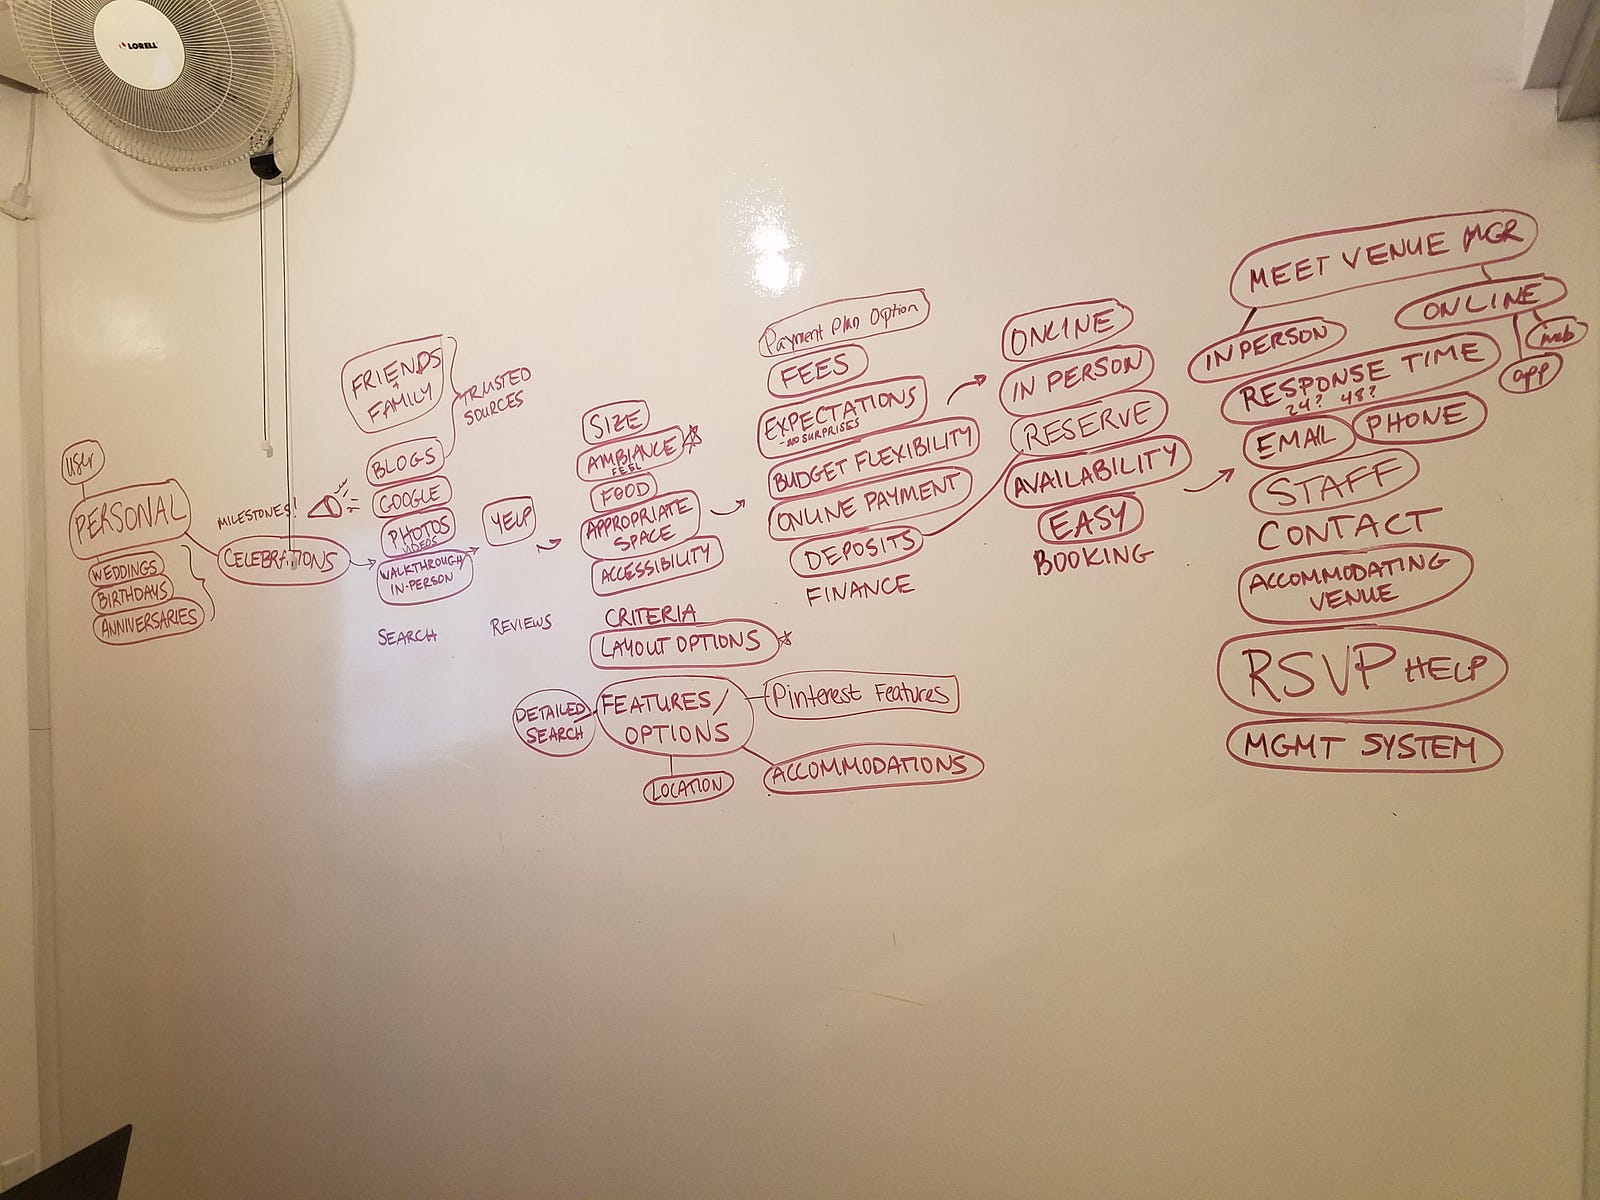 LORELL
USER
PERSONAL
WEDDINGS
BIRTHDAYS
ANNIVERSARIES
MILESTONES!
CELEBRATIONS
FRIENDS
+
FAMILY
TRUSTED
SOURCES
BLOGS
GOOGLE
PHOTOS
VIDEOS
WALKTHROUGH
IN-PERSON
SEARCH
YELP
REVIEWS
SIZE
AMBIANCE
FEEL
FOOD
APPROPRIATE
SPACE
ACCESSIBILITY
CRITERIA
LAYOUT OPTIONS
DETAILED
SEARCH
FEATURES/
OPTIONS
Pinterest Features
LOCATION
ACCOMMODATIONS
Payment Plan Option
FEES
EXPECTATIONS
- NO SURPRISES
BUDGET FLEXIBILITY
ONLINE PAYMENT
DEPOSITS
FINANCE
ONLINE
IN PERSON
RESERVE
AVAILABILITY
EASY
BOOKING
MEET VENUE MGR
IN PERSON
ONLINE
web
app
RESPONSE TIME
24? 48?
EMAIL
PHONE
STAFF
CONTACT
ACCOMMODATING
VENUE
RSVP HELP
MGMT SYSTEM